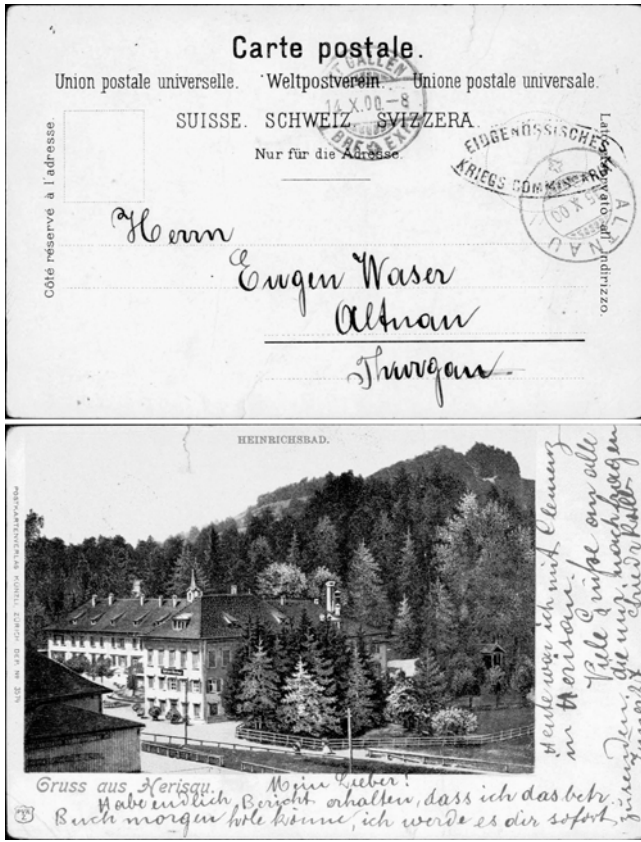 Carte postale.
Union postale universelle. Weltpostverein. Unione postale universale.
SUISSE. SCHWEIZ. SVIZZERA.
Nur für die Adresse.
Côté réservé à l'adresse.
Lato riservato all'indirizzo.
ST. GALLEN
14.X.00.-8
BRF. EXP.
EIDGENÖSSISCHES
KRIEGS COMMISSARIAT
ALTNAU
X.00
Herrn
Eugen Waser
Altnau
Thurgau
HEINRICHSBAD.
POSTKARTENVERLAG KÜNZLI, ZÜRICH DEP. Nr.
Gruss aus Herisau.
Mein Lieber!
Habe endlich Bericht erhalten, dass ich das betr.
Buch morgen hole könne, ich werde es dir sofort
zusenden, die mir nachfragen
Heute war ich mit Clemenz
in Herisau.
Viele Grüße an alle